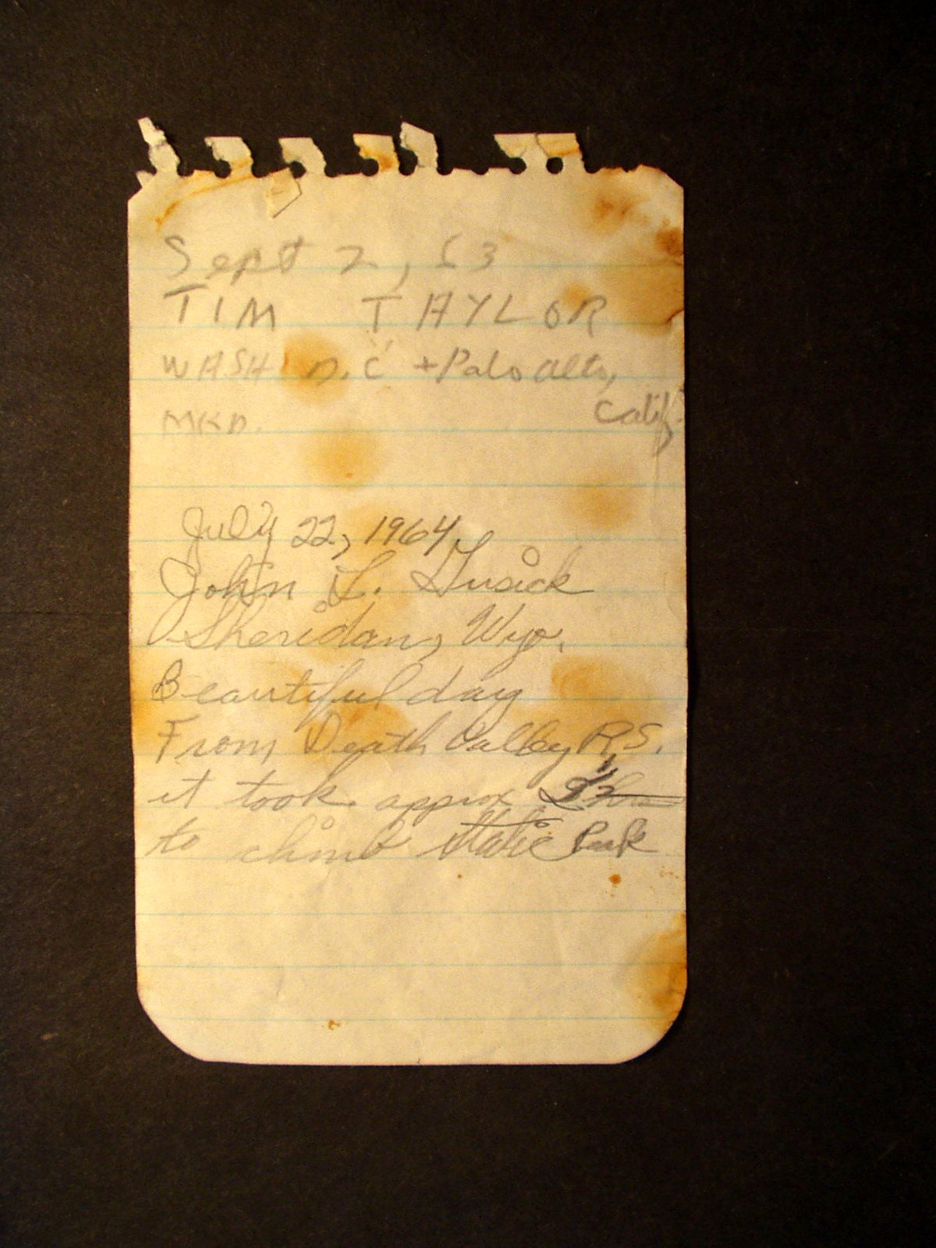 Sept 2, 63
TIM TAYLOR
WASH D.C + Palo Alto,
Calif.
MKD.
July 22, 1964
John L. Gusick
Sheridan, Wyo.
Beautiful day
From Death Valley R.S.
it took approx
to climb Static Peak